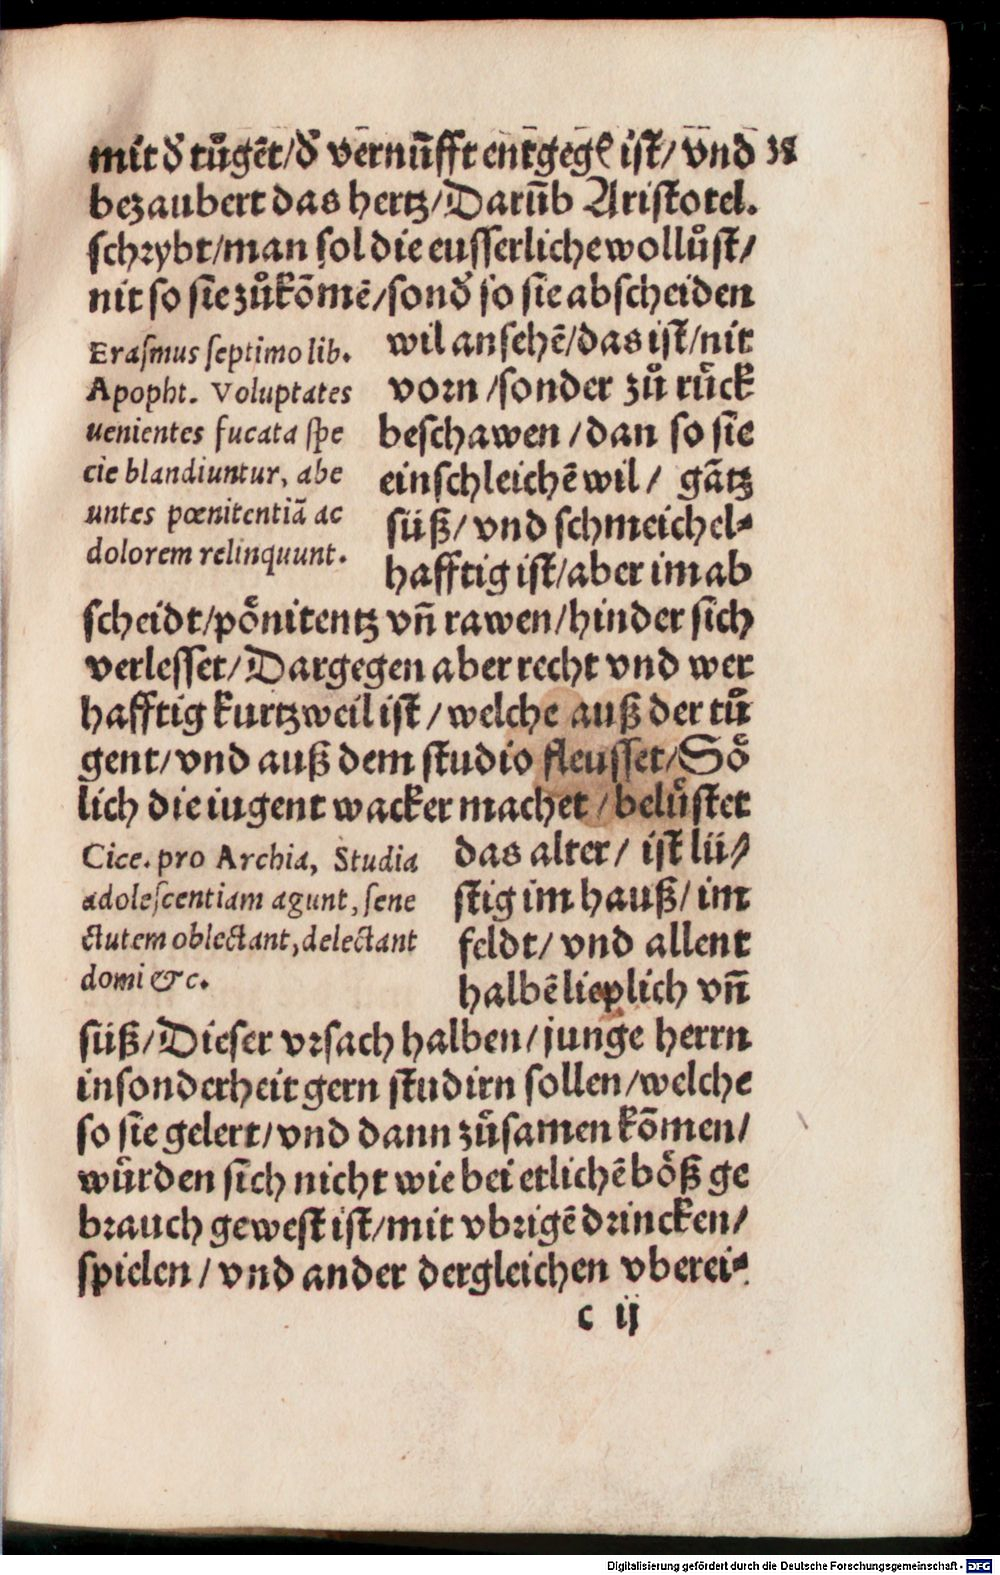 mit ð tůgēt/ð vernūfft entgegē ist/ vnd
bezaubert das hertz/Darūb Aristotel.
schrybt/man sol die eusserliche wollůst/
nit so sie zůkōmē/sonð so sie abscheiden
wil ansehē/das ist/nit
vorn /sonder zů rück
beschawen /dan so sie
einschleichē wil/ gātz
süß/ vnd schmeichel-
hafftig ist/aber im ab
Erasmus septimo lib.
Apopht. Voluptates
uenientes fucata spe
cie blandiuntur, abe
untes pœnitentiā ac
dolorem relinquunt.
scheidt/pönitentz vñ rawen/hinder sich
verlesset/Dargegen aber recht vnd wer
hafftig kurtzweil ist /welche auß der tů
gent/vnd auß dem studio fleusset/Sö
lich die iugent wacker machet /belüstet
das alter/ ist lü-
stig im hauß/ im
feldt/ vnd allent
halbē lieplich vñ
Cice. pro Archia, Studia
adolescentiam agunt, sene
ctutem oblectant, delectant
domi &c.
süß/Dieser vrsach halben/junge herrn
insonderheit gern studirn sollen/welche
so sie gelert/vnd dann zůsamen kōmen/
würden sich nicht wie bei etlichē böß ge
brauch gewest ist/mit vbrigē drincken/
spielen/ vnd ander dergleichen vberei-
c ij
Digitalisierung gefördert durch die Deutsche Forschungsgemeinschaft - DFG